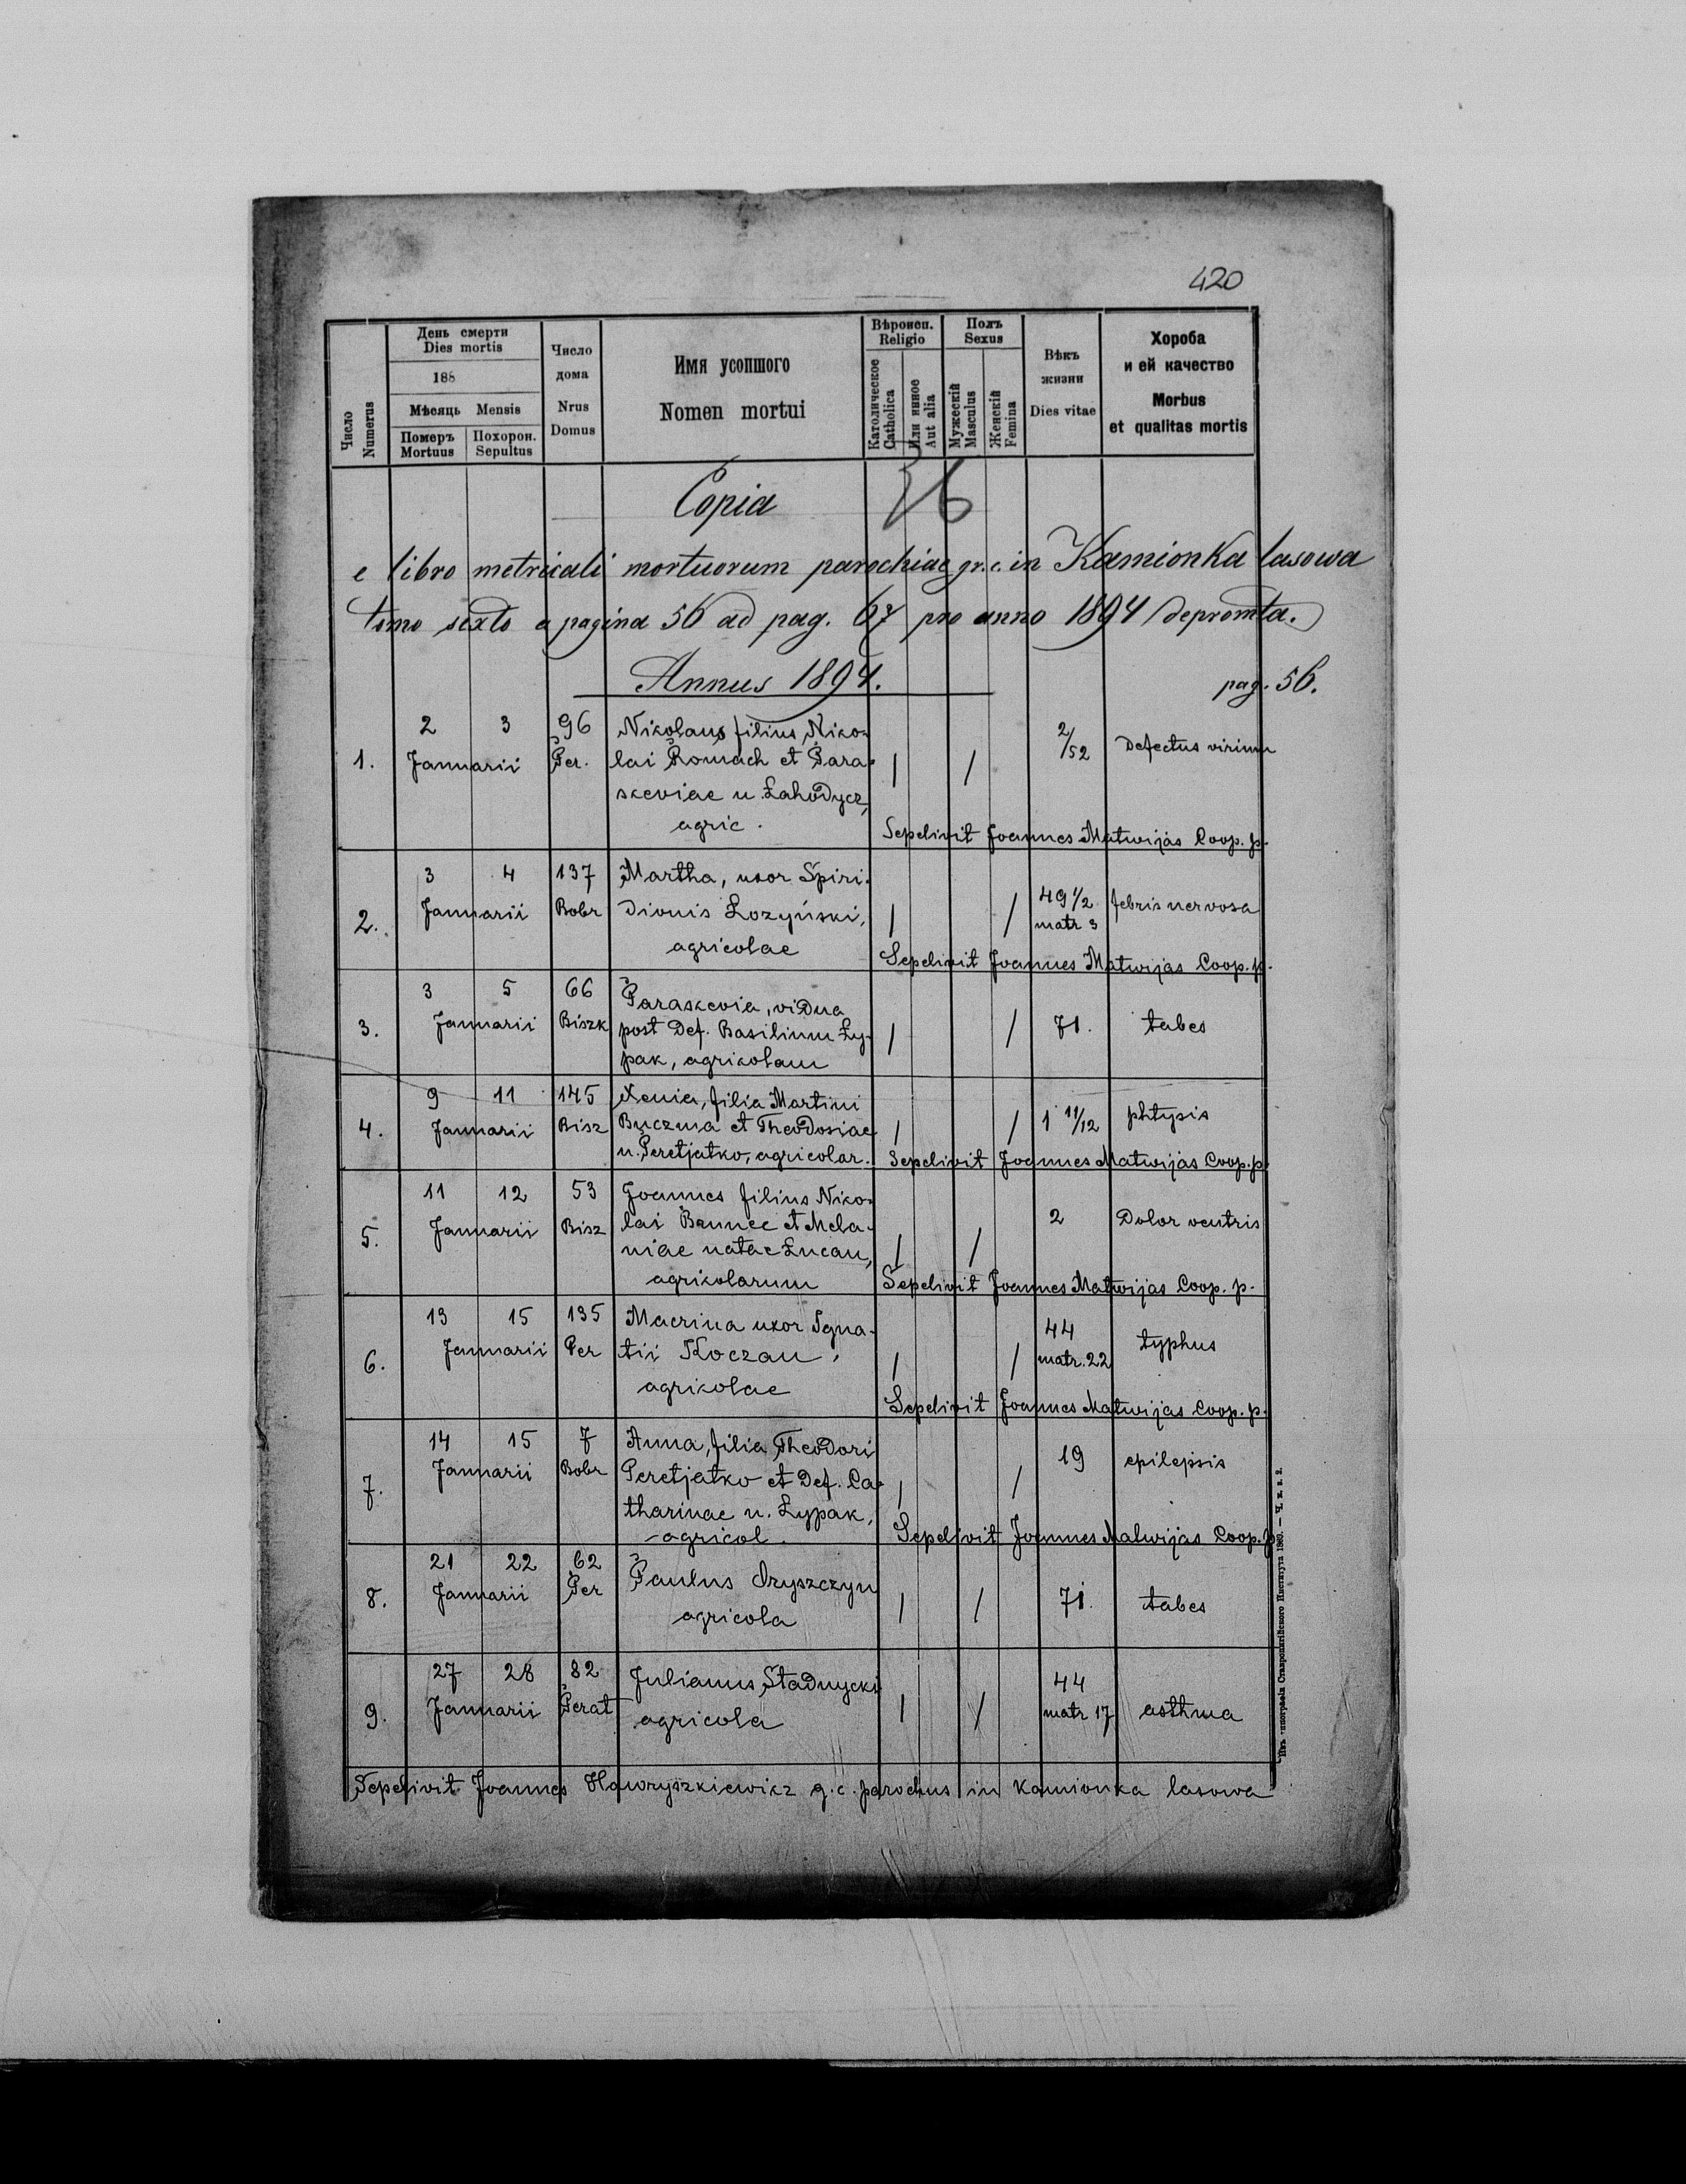 420
День смерти
Dies mortis
188
Мѣсяць Mensis
Померъ
Mortuus
Похорон.
Sepultus
Число
Numerus
Число
дома
Nrus
Domus
Имя усопшого
Nomen mortui
Вѣроисп.
Religio
Католическое
Catholica
Или инное
Aut alia
Полъ
Sexus
Мужескій
Masculus
Женскій
Femina
Вѣкъ
жизни
Dies vitae
Хороба
и ей качество
Morbus
et qualitas mortis
Copia
e libro metricali mortuorum parochiae gr. c. in Kamionka lasowa
tomo sexto a pagina 56 ad pag. 67 pro anno 1894 depromta.
Annus 1894. pag. 56.
1. 2 3 Januarii 96 Per.
Nikolaus filius Niko-
lai Romach et Para-
skeviae n Łahodycz,
agric.
/ / 2/52 Defectus virium
Sepelivit Joannes Matwijas Coop. p.
2. 3 4 Januarii 137 Bobr
Martha, uxor Spiri-
dionis Łozyński,
agricolae
/ / 49 1/2 matr 3 febris nervosa
Sepelivit Joannes Matwijas Coop. p.
3. 3 5 Januarii 66 Biszk
Paraskevia, vidua
post def. Basilium Ły-
pak, agrikolam
/ / 71. tabes
4. 9 11 Januarii 145 Bisz
Xenia, filia Martini
Buczma et Theodosiae
n. Peretjatko, agricolar.
/ / 1 11/12 phtysis
Sepelivit Joannes Matwijas Coop. p.
5. 11 12 Januarii 53 Bisz
Joannes filius Niko-
lai et Mela-
niae natae Łucan,
agrikolarum
/ / 2 Dolor ventris
Sepelivit Joannes Matwijas Coop. p.
6. 13 15 Januarii 135 Per
Macrina uxor Igna-
tii Koczan,
agrikolae
/ / 44 matr. 22 typhus
Sepelivit Joannes Matwijas Coop. p.
7. 14 15 Januarii 7 Bobr
Anna, filia Theodori
Peretjatko et def. Ca-
tharinae n. Łypak,
agricol.
/ / 19 epilepsis
Sepelivit Joannes Matwijas Coop. p.
8. 21 22 Januarii 62 Per
Paulus
agricola
/ / 71. tabes
9. 27 28 Januarii 82 Perat
Julianus Stadnycki
agricola
/ / 44 matr 17 asthma
Sepelivit Joannes Hawryszkiewicz g. c. parochus in Kamionka lasowa
Ставропигійского Института 1880. —